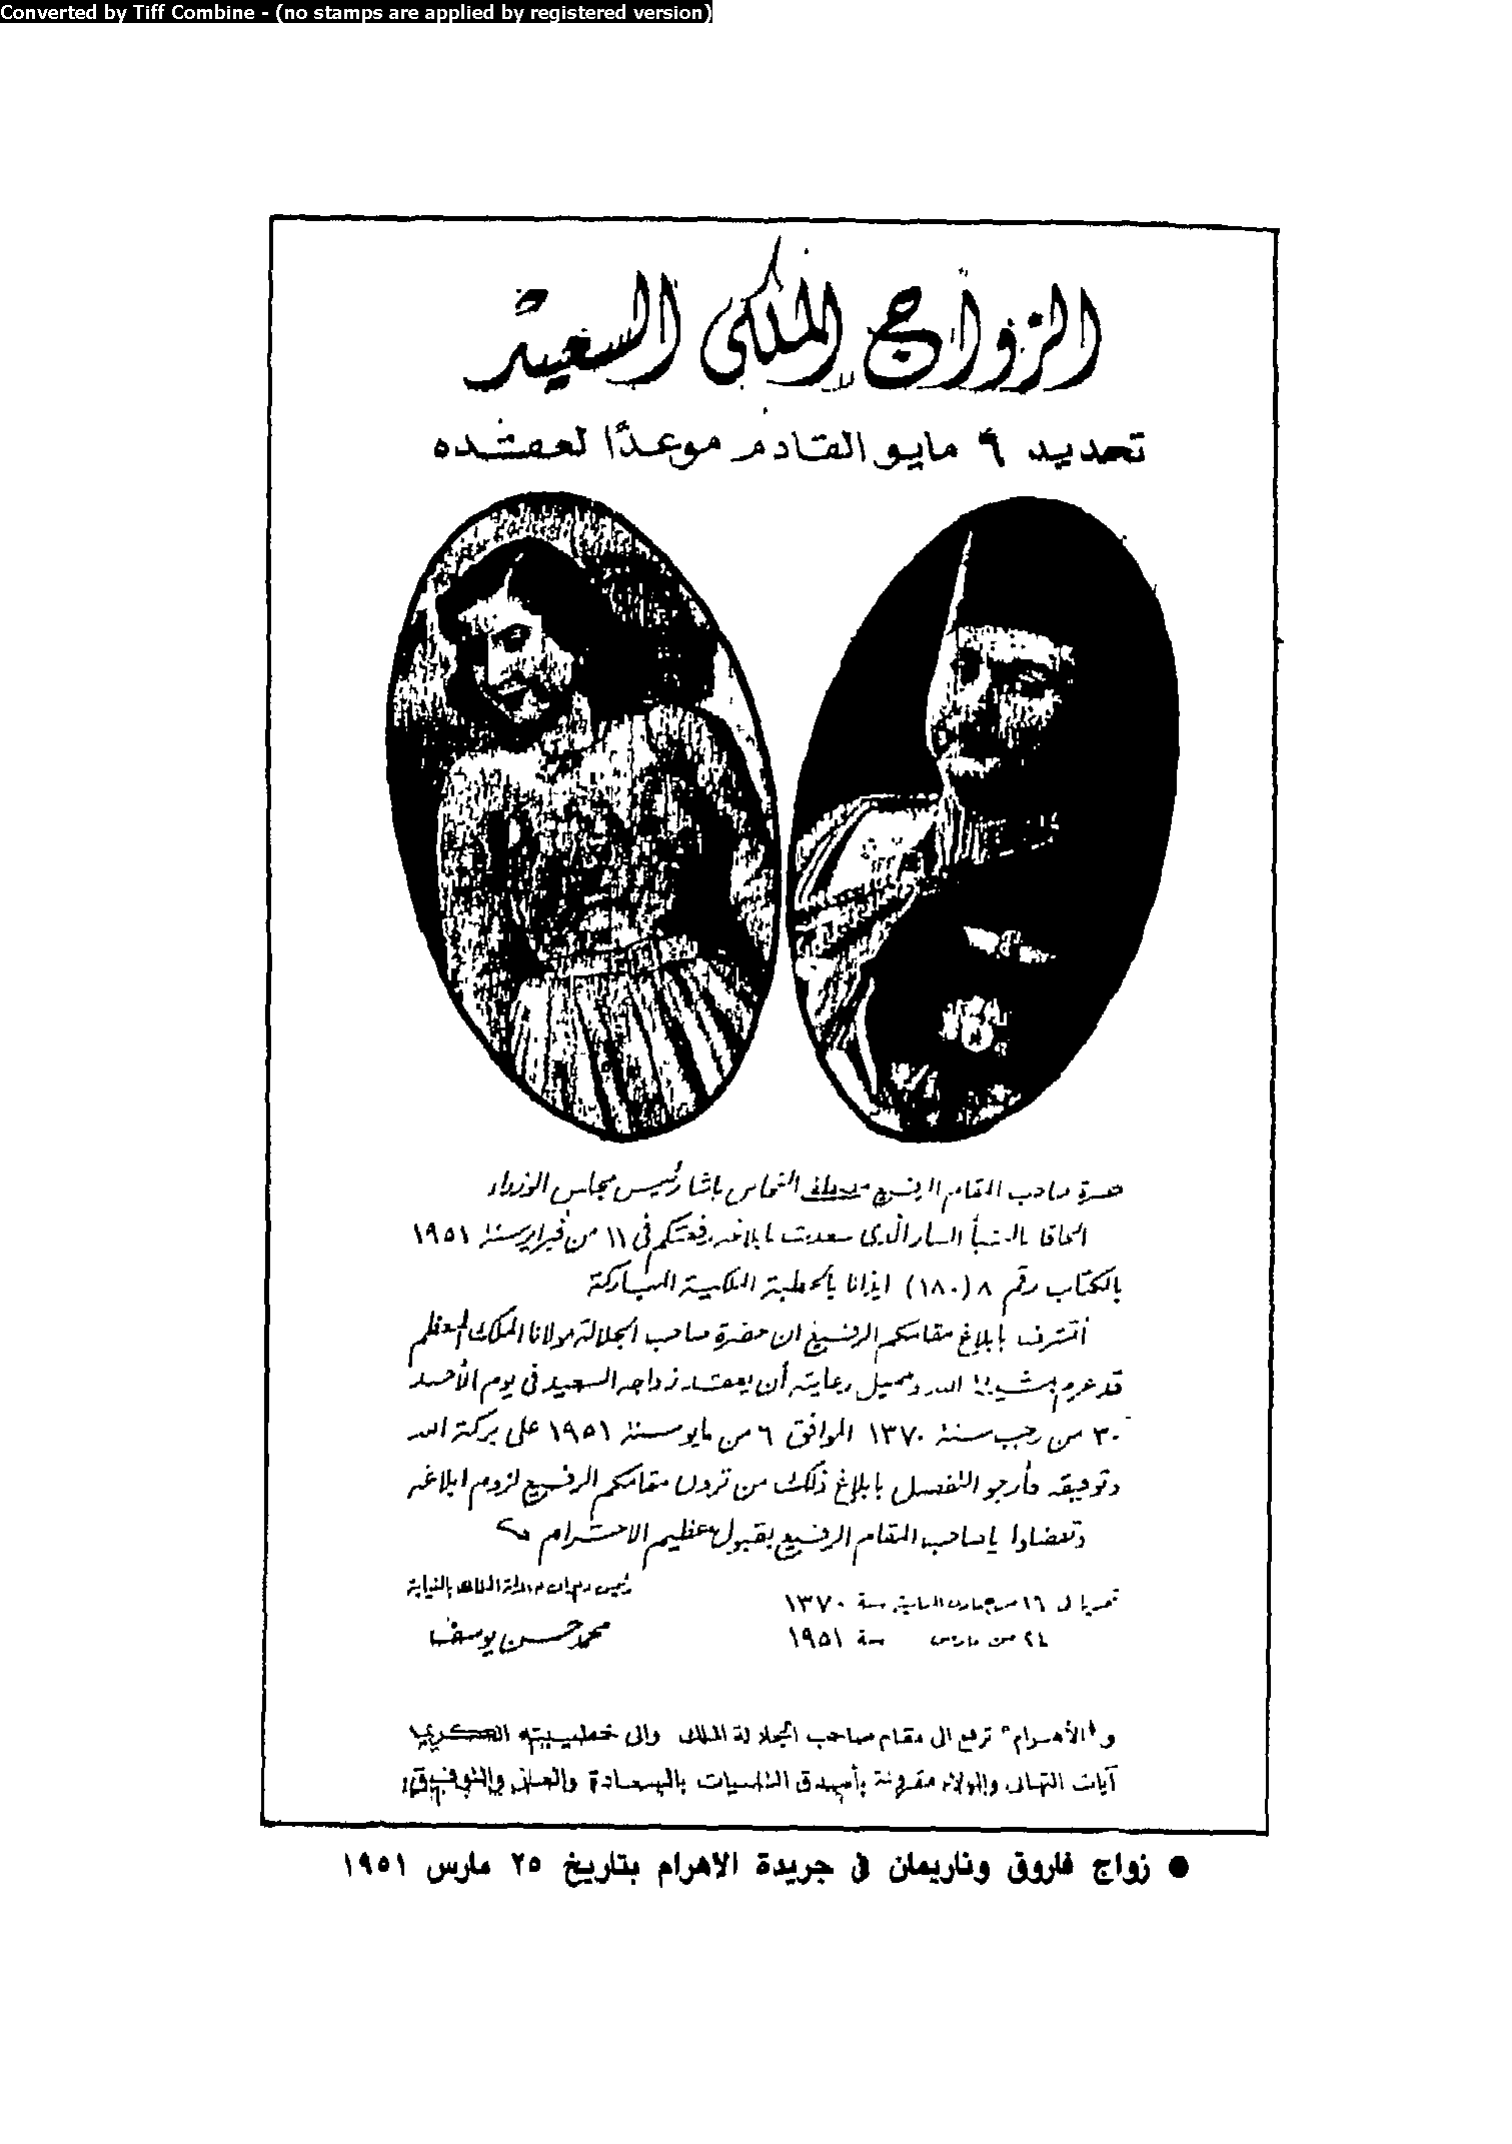 Converted by Tiff Combine - (no stamps are applied by registered version)
الزواج الملكى السعيد
تحديد ٦ مايو القادم موعدًا لعقده
حضرة صاحب المقام الرفيع مصطفى النحاس باشا رئيس مجلس الوزراء
الحاقا بالنبأ السار الذى سعدت بابلاغه رفعتكم فى ١١ من فبراير سنة ١٩٥١
بالكتاب رقم ٨ (١٨٠) ايذانا بالخطبة الملكية المباركة
أتشرف بابلاغ مقامكم الرفيع ان حضرة صاحب الجلالة مولانا الملك المعظم
قد عزم بمشيئة الله وجميل رعايته أن يعقد زواجه السعيد فى يوم الأحد
٣٠ من رجب سنة ١٣٧٠ الموافق ٦ من مايو سنة ١٩٥١ على بركة الله
وتوفيقه فأرجو التفضل بابلاغ ذلك من ترون مقامكم الرفيع لزوم ابلاغه
وتفضلوا يا صاحب المقام الرفيع بقبول عظيم الاحترام
رئيس ديوان جلالة الملك بالنيابة
محمد حسن يوسف
تحريرا فى ١٦ من جمادى الثانية سنة ١٣٧٠
٢٤ من مارس سنة ١٩٥١
و"الأهرام" ترفع الى مقام صاحب الجلالة الملك والى خطيبته الكريمة
آيات التهانى والولاء مقرونة بأصدق التمنيات بالسعادة والهناء والتوفيق
● زواج فاروق وناريمان فى جريدة الاهرام بتاريخ ٢٥ مارس ١٩٥١